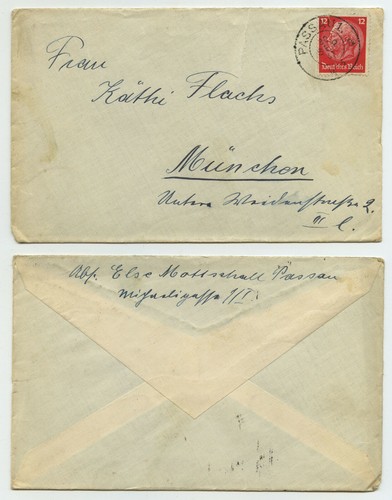 12 12
Deutsches Reich
PASS
Frau
Käthi Flachs
München
Untere Weidenstraße 2.
III l.
Abs. Else Mottschall Passau
Michaeligasse 1/I.